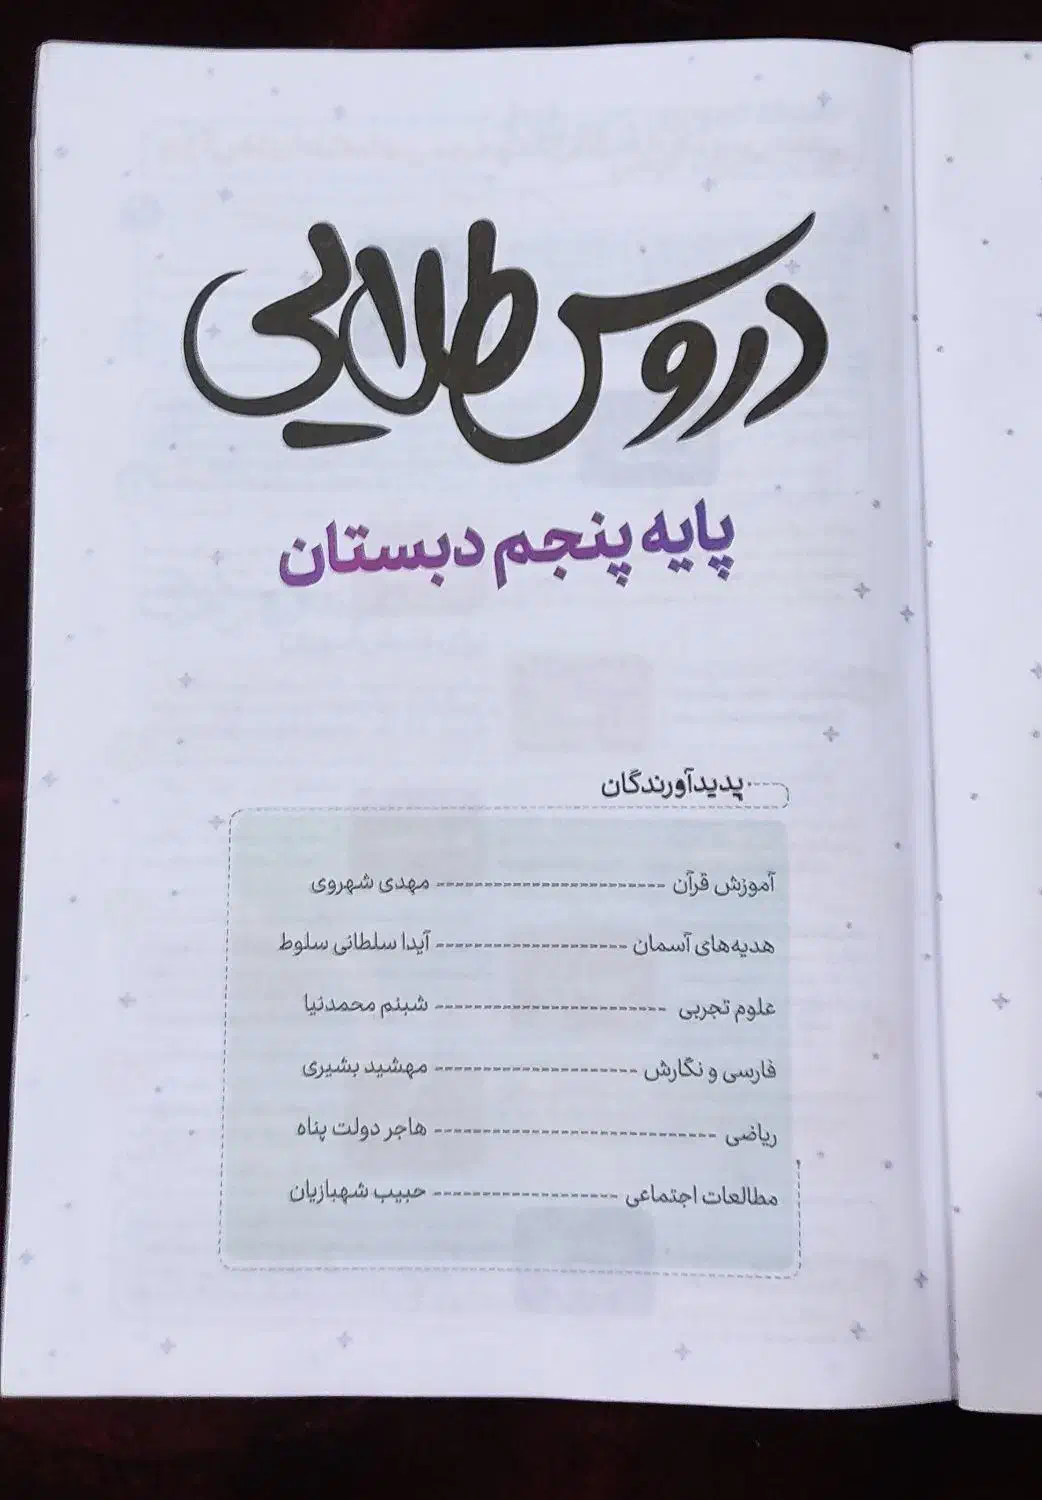 دروس طلایی
پایه پنجم دبستان
پدیدآورندگان
آموزش قرآن ------------------------ مهدی شهروی
هدیه‌های آسمان -------------------- آیدا سلطانی سلوط
علوم تجربی ------------------------ شبنم محمدنیا
فارسی و نگارش --------------------- مهشید بشیری
ریاضی ----------------------------- هاجر دولت پناه
مطالعات اجتماعی ------------------- حبیب شهبازیان